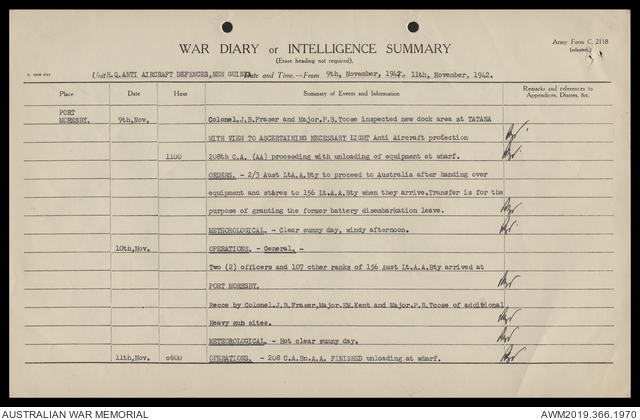 Army Form C. 2118
(adapted.)
WAR DIARY or INTELLIGENCE SUMMARY
(Erase heading not required).
Unit H.Q.ANTI AIRCRAFT DEFENCES,NEW GUINEA Date and Time.—From 9th, November, 1942. To 11th, November, 1942.
Place Date Hour Summary of Events and Information Remarks and references to Appendices, Diaries, &c.
PORT
MORESBY. 9th,Nov. Colonel.J.B.Fraser and Major.P.B.Toose inspected new dock area at TATANA
WITH VIEW TO ASCERTAINING NECESSARY LIGHT Anti Aircraft protection
1100 208th C.A. (AA) proceeding with unloading of equipment at wharf.
ORDERS. - 2/3 Aust LtA.A.Bty to proceed to Australia after handing over
equipment and stores to 156 Lt.A.A.Bty when they arrive.Transfer is for the
purpose of granting the former battery disembarkation leave.
METEOROLOGICAL. - Clear sunny day, windy afternoon.
10th,Nov. OPERATIONS. - General. -
Two (2) officers and 107 other ranks of 156 Aust Lt.A.A.Bty arrived at
PORT MORESBY.
Recce by Colonel.J.B.Fraser,Major.HM.Kent and Major.P.B.Toose of additional
Heavy gun sites.
METEOROLOGICAL - Hot clear sunny day.
11th,Nov. o600 OPERATIONS. - 208 C.A.Bn.A.A. FINISHED unloading at wharf.
AUSTRALIAN WAR MEMORIAL AWM2019.366.1970